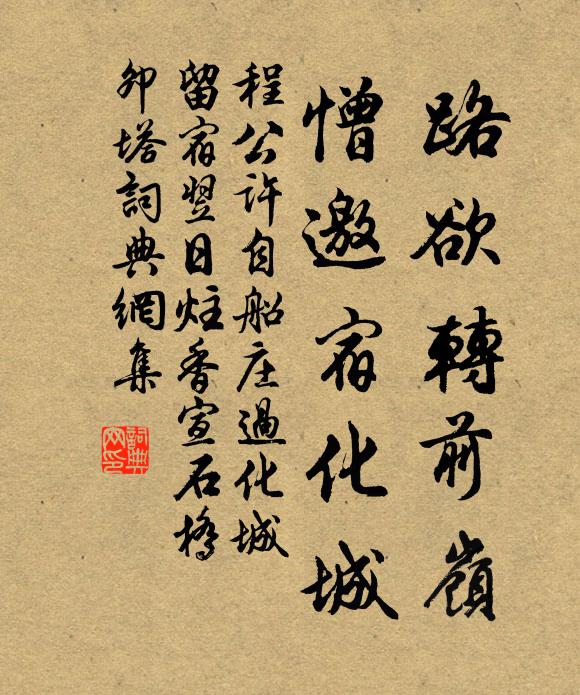 路欲轉前嶺
憎邀宿化城
程公許自船庄過化城
留宿翌日炷香宣石橋
卯塔詞典網集
詞典
网印